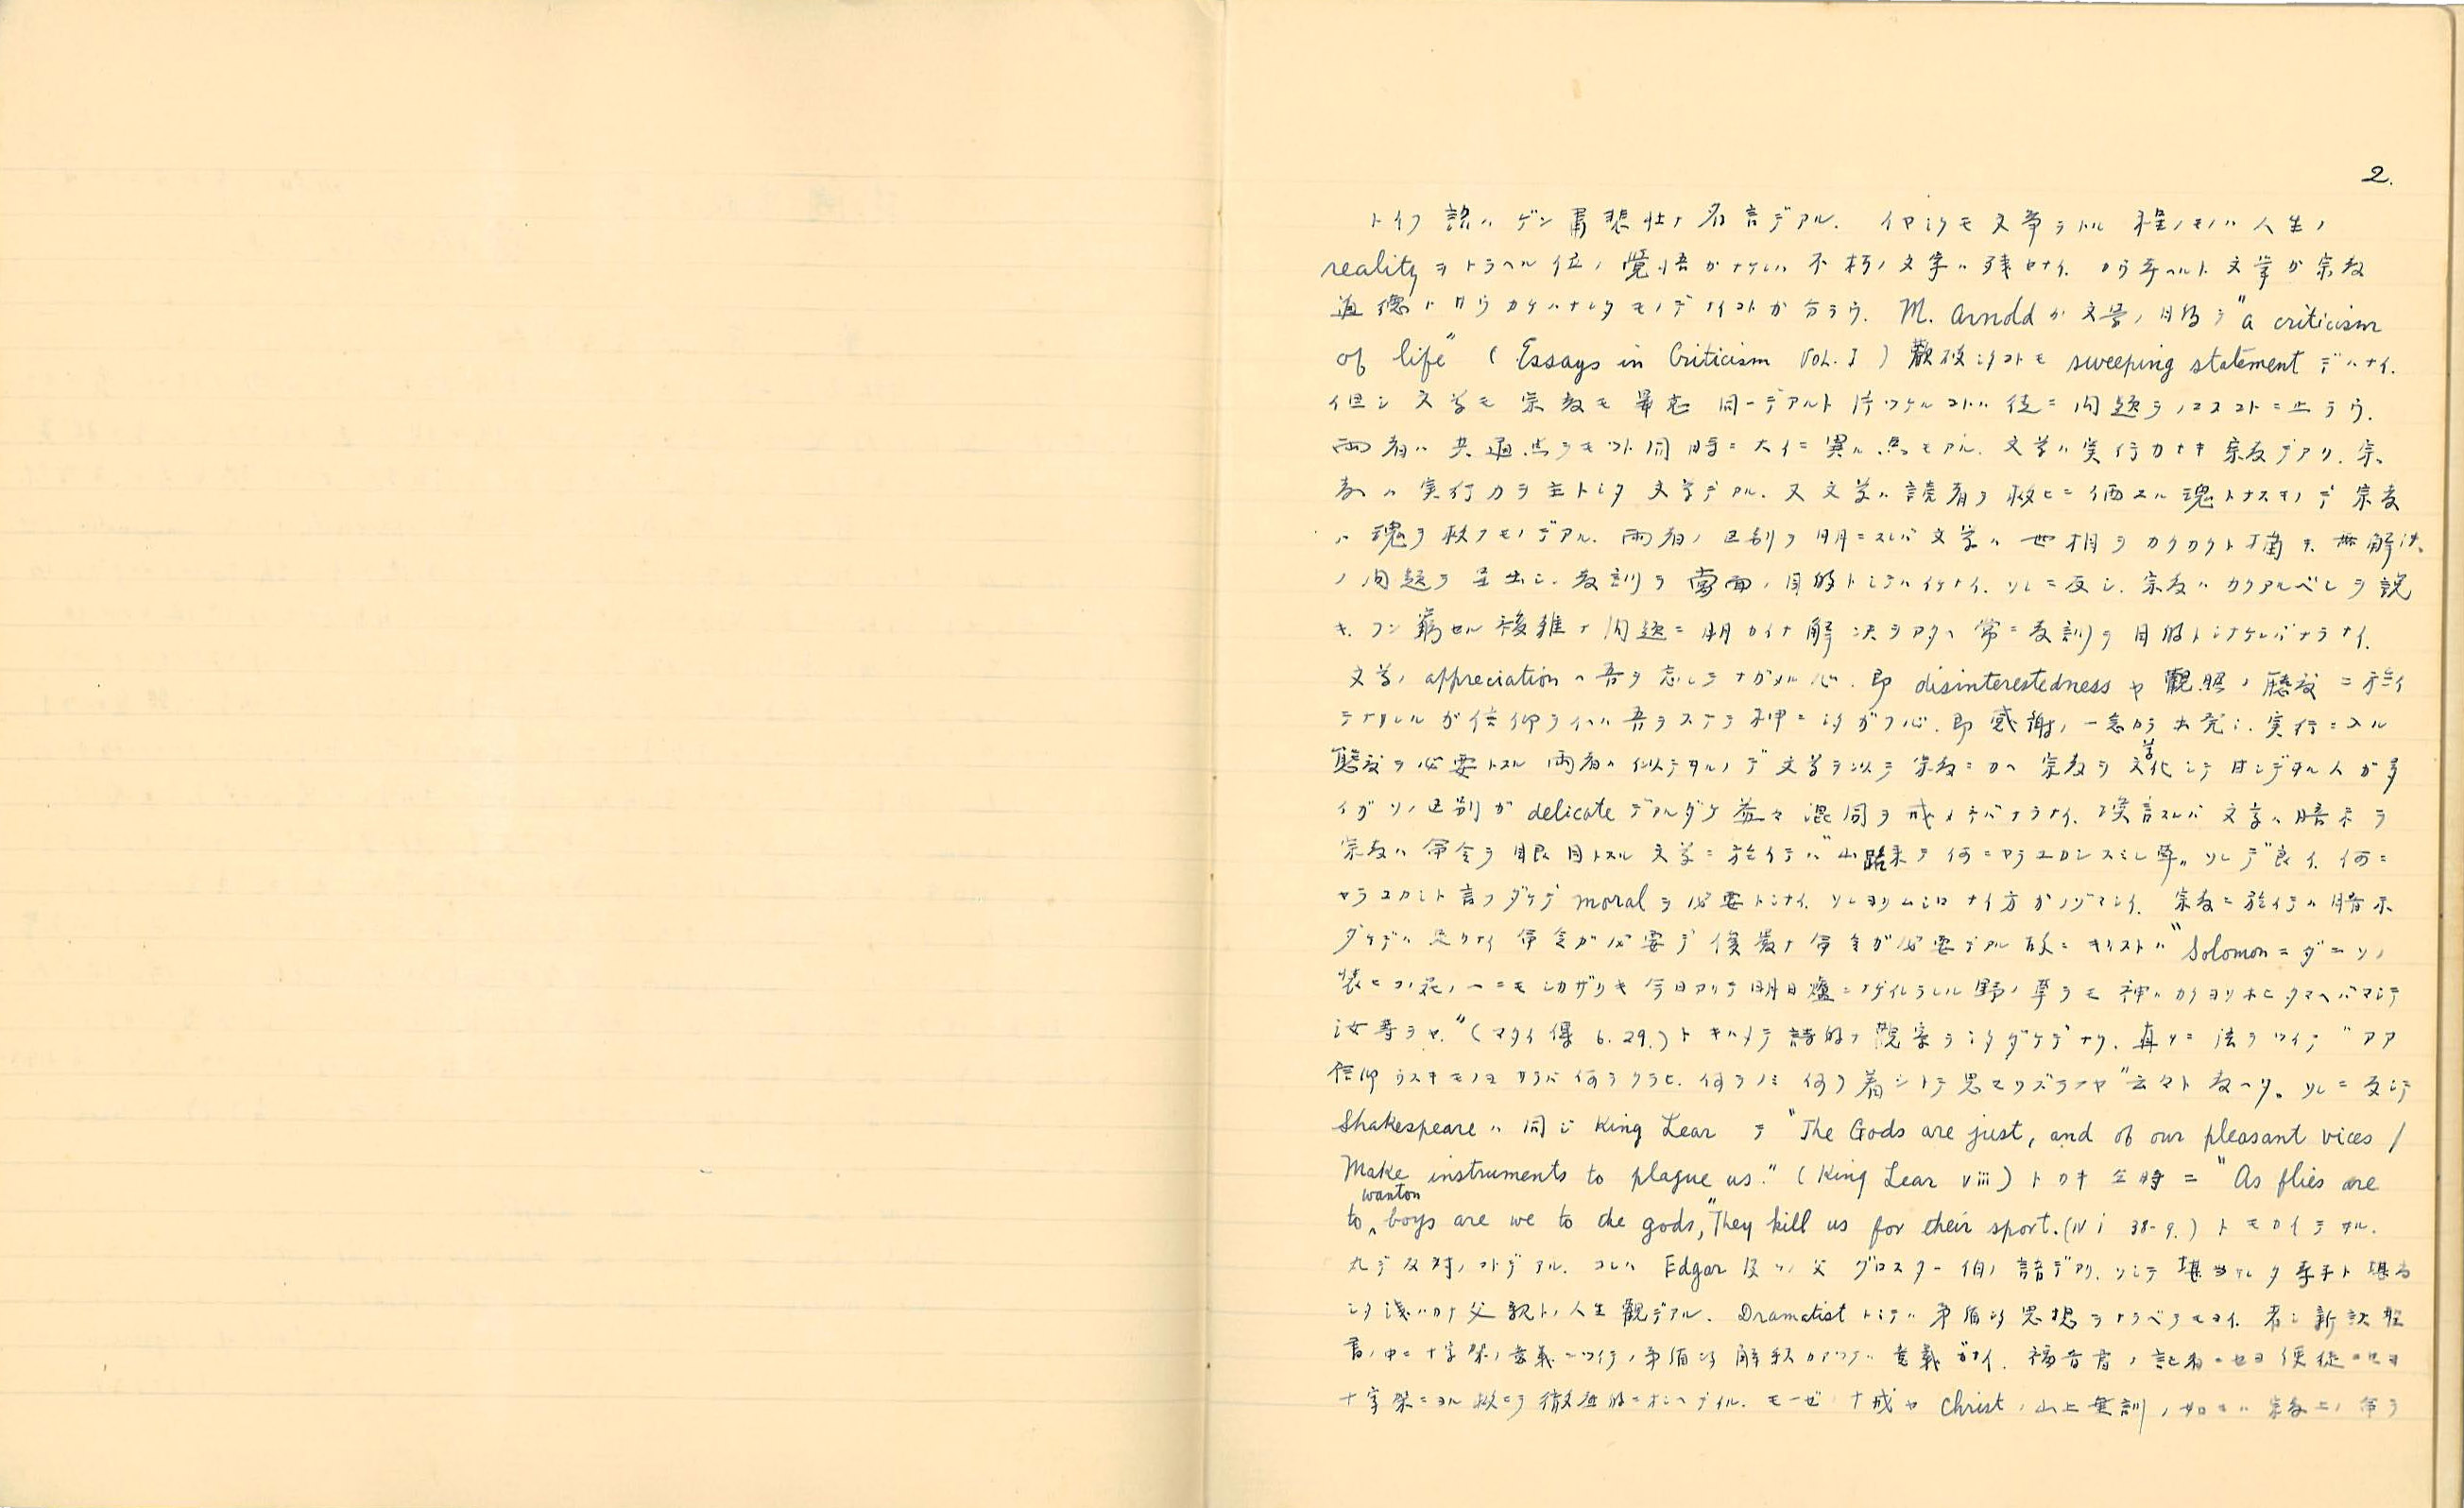 2.
トイフ語ハゲン粛 名言デアル. イヤシクモ文筆ヲトル程ノモノハ人生ノ
realityヲトラヘル位ノ覚悟ガナケレバ不朽ノ文学ハ残セナイ. カウ考ヘルト文学ガ宗教
道徳トカケハナレタモノデナイコトガ分ラウ. M. Arnoldガ文学ノ目的ヲ"a criticism
of life" ( Essays in Criticism Vol. I ) 破シタコトモ sweeping statement デハナイ.
但シ文学モ宗教モ畢竟同一デアルト片ヅケルコトハ徒ニ問題ヲノコスコトニ止ラウ.
両者ハ共通点ヲモツト同時ニ大イニ異ル点モアル. 文学ハ実行力ナキ宗教デアリ. 宗
教ハ実行力ヲ主トシタ文学デアル. 又文学ハ読者ヲ救ヒニ価スル魂トナスモノデ宗教
ハ魂ヲ救フモノデアル. 両者ノ区別ヲ明ニスレバ文学ハ世相ヲカクカクト描キ. 無解決
ノ問題ヲ呈出シ. 教訓ヲ当面ノ目的トシテハイケナイ. ソレニ反シ. 宗教ハカクアルベシヲ説
キ. フン 複雑ナ問題ニ明カイナ解決ヲアタヘ常ニ教訓ヲ目的トシナケレバナラナイ.
文学ノ appreciation ハ吾ヲ忘レテナガメル心. 即 disinterestedness ヤ観照ノ態度ニ於イ
テナサレルガ信仰 ハ吾ヲステテ神ニシタガフ心. 即感謝ノ一念カラ出発シ. 実行ニ入ル
態度ヲ必要トスル 両者ハ似テヰルノデ文学ヲ以テ宗教ニカヘ宗教ヲ文学化シテ甘ンデヰル人ガ多
イガソノ区別ガ delicate デアルダケ益々混同ヲ戒メネバナラナイ. 換言スレバ文学ハ暗示ヲ
宗教ハ命令ヲ眼目トスル 文学ニ於イテハ"山路来テ何ニヤラユカシスミレ草"ソレデ良イ. 何ニ
ヤラユカシト言フダケデ moral ヲ必要トシナイ. ソレヨリムシロナイ方ガノゾマシイ. 宗教ニ於イテハ暗示
ダケデハ足リナイ 命令ガ必要デ 命令ガ必要デアル 故ニキリストハ"Solomonニダニソノ
装ヒコノ花ノ一ニモシカザリキ 今日アリテ明日爐ニナゲイレラレル野ノ草ヲモ神ハカクヨソホヒタマヘバマシテ
汝等ヲヤ."(マタイ傳 6. 29.) トキハメテ詩的ナ観察ヲシタダケデナク. 直チニ法ヲツイテ"アア
信仰ウスキモノヨ サラバ何ヲクラヒ. 何ヲノミ 何ヲ着ントテ思ヒワズラフヤ"云々ト教ヘタ. ソレニ反シテ
Shakespeare ハ同ジ King Lear デ "The Gods are just, and of our pleasant vices /
Make instruments to plague us." ( King Lear V iii ) トカキ 仝時ニ "As flies are
to wanton boys are we to the gods, They kill us for their sport." (IV i 38-9.) トモカイテヰル.
丸デ反対ノコトデアル. コレハ Edgar 及ソノ父グロスター伯ノ語デアリ. ソシテ 孝子ト
シタ浅ハカナ父親トノ人生観デアル. Dramatist トシテハ矛盾シタ思想ヲナラベテモヨイ. 若シ新訳聖
書ノ中ニ十字架ノ意義ニツイテノ矛盾シタ解釈ガアツテハ意義ガナイ. 福音書ノ記者ニセヨ使徒ニセヨ
十字架ニヨル救ヒヲ徹底的ニオシヘテイル. モーゼノ十戒ヤ Christ ノ山上垂訓ノ如キハ宗教上ノ命ヲ